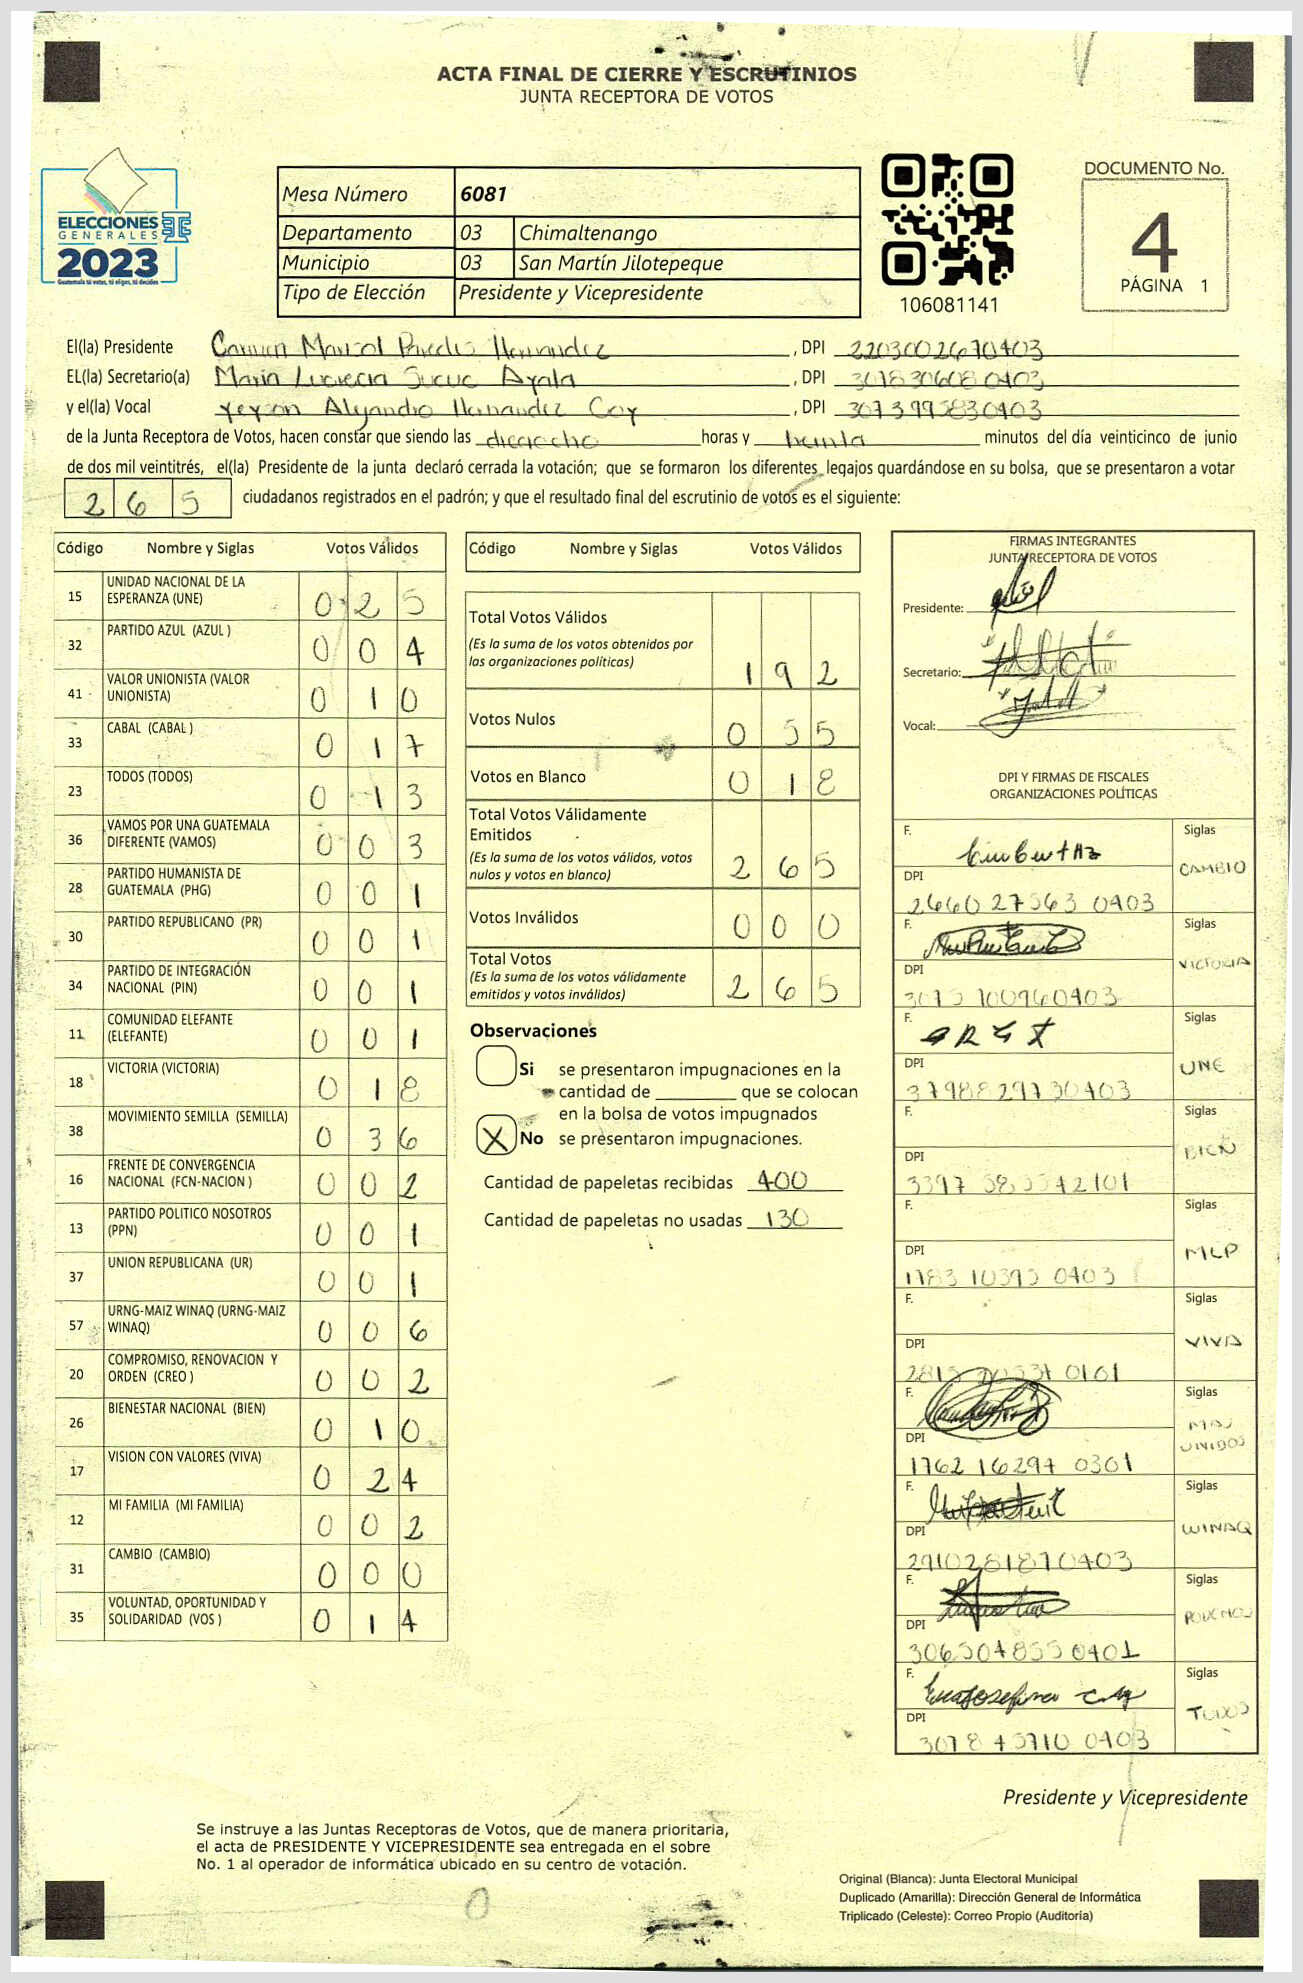 ACTA FINAL DE CIERRE Y ESCRUTINIOS
JUNTA RECEPTORA DE VOTOS
ELECCIONES
GENERALES
2023
Guatemala tú votas, tú eliges, tú decides
Mesa Número 6081
Departamento 03 Chimaltenango
Municipio 03 San Martín Jilotepeque
Tipo de Elección Presidente y Vicepresidente
106081141
DOCUMENTO No.
4
PÁGINA 1
El(la) Presidente Carmen Marisol Paredes Hernandez, DPI 2203002670403
EL(la) Secretario(a) Maria Lucrecia Sucuc Ayala, DPI 3078306080403
y el(la) Vocal Yeyson Alejandro Hernandez Coy, DPI 3073995830403
de la Junta Receptora de Votos, hacen constar que siendo las dieciocho horas y treinta minutos del día veinticinco de junio
de dos mil veintitrés, el(la) Presidente de la junta declaró cerrada la votación; que se formaron los diferentes legajos guardándose en su bolsa, que se presentaron a votar
265 ciudadanos registrados en el padrón; y que el resultado final del escrutinio de votos es el siguiente:
Código Nombre y Siglas Votos Válidos
15 UNIDAD NACIONAL DE LA ESPERANZA (UNE) 0 2 5
32 PARTIDO AZUL (AZUL ) 0 0 4
41 VALOR UNIONISTA (VALOR UNIONISTA) 0 1 0
33 CABAL (CABAL ) 0 1 7
23 TODOS (TODOS) 0 1 3
36 VAMOS POR UNA GUATEMALA DIFERENTE (VAMOS) 0 0 3
28 PARTIDO HUMANISTA DE GUATEMALA (PHG) 0 0 1
30 PARTIDO REPUBLICANO (PR) 0 0 1
34 PARTIDO DE INTEGRACIÓN NACIONAL (PIN) 0 0 1
11 COMUNIDAD ELEFANTE (ELEFANTE) 0 0 1
18 VICTORIA (VICTORIA) 0 1 8
38 MOVIMIENTO SEMILLA (SEMILLA) 0 3 6
16 FRENTE DE CONVERGENCIA NACIONAL (FCN-NACION ) 0 0 2
13 PARTIDO POLITICO NOSOTROS (PPN) 0 0 1
37 UNION REPUBLICANA (UR) 0 0 1
57 URNG-MAIZ WINAQ (URNG-MAIZ WINAQ) 0 0 6
20 COMPROMISO, RENOVACION Y ORDEN (CREO ) 0 0 2
26 BIENESTAR NACIONAL (BIEN) 0 1 0
17 VISION CON VALORES (VIVA) 0 2 4
12 MI FAMILIA (MI FAMILIA) 0 0 2
31 CAMBIO (CAMBIO) 0 0 0
35 VOLUNTAD, OPORTUNIDAD Y SOLIDARIDAD (VOS ) 0 1 4
Código Nombre y Siglas Votos Válidos
Total Votos Válidos
(Es la suma de los votos obtenidos por
las organizaciones políticas) 1 9 2
Votos Nulos 0 5 5
Votos en Blanco 0 1 8
Total Votos Válidamente
Emitidos
(Es la suma de los votos válidos, votos
nulos y votos en blanco) 2 6 5
Votos Inválidos 0 0 0
Total Votos
(Es la suma de los votos válidamente
emitidos y votos inválidos) 2 6 5
Observaciones
Si se presentaron impugnaciones en la
cantidad de ________ que se colocan
en la bolsa de votos impugnados
X No se presentaron impugnaciones.
Cantidad de papeletas recibidas 400
Cantidad de papeletas no usadas 130
FIRMAS INTEGRANTES
JUNTA RECEPTORA DE VOTOS
Presidente:
Secretario:
Vocal:
DPI Y FIRMAS DE FISCALES
ORGANIZACIONES POLÍTICAS
F. Siglas
CAMBIO
DPI
2660 27563 0403
F. Siglas
VICTORIA
DPI
F. Siglas
UNE
DPI
3798829730403
F. Siglas
BIEN
DPI
F. Siglas
MLP
DPI
1783 10395 0403
F. Siglas
VIVA
DPI
F. Siglas
MAS
UNIDOS
DPI
1762 16297 0301
F. Siglas
WINAQ
DPI
2910281870403
F. Siglas
PODEMOS
DPI
306504855 0401
F. Siglas
TODOS
DPI
3078 45710 0403
Presidente y Vicepresidente
Se instruye a las Juntas Receptoras de Votos, que de manera prioritaria,
el acta de PRESIDENTE Y VICEPRESIDENTE sea entregada en el sobre
No. 1 al operador de informática ubicado en su centro de votación.
Original (Blanca): Junta Electoral Municipal
Duplicado (Amarilla): Dirección General de Informática
Triplicado (Celeste): Correo Propio (Auditoría)